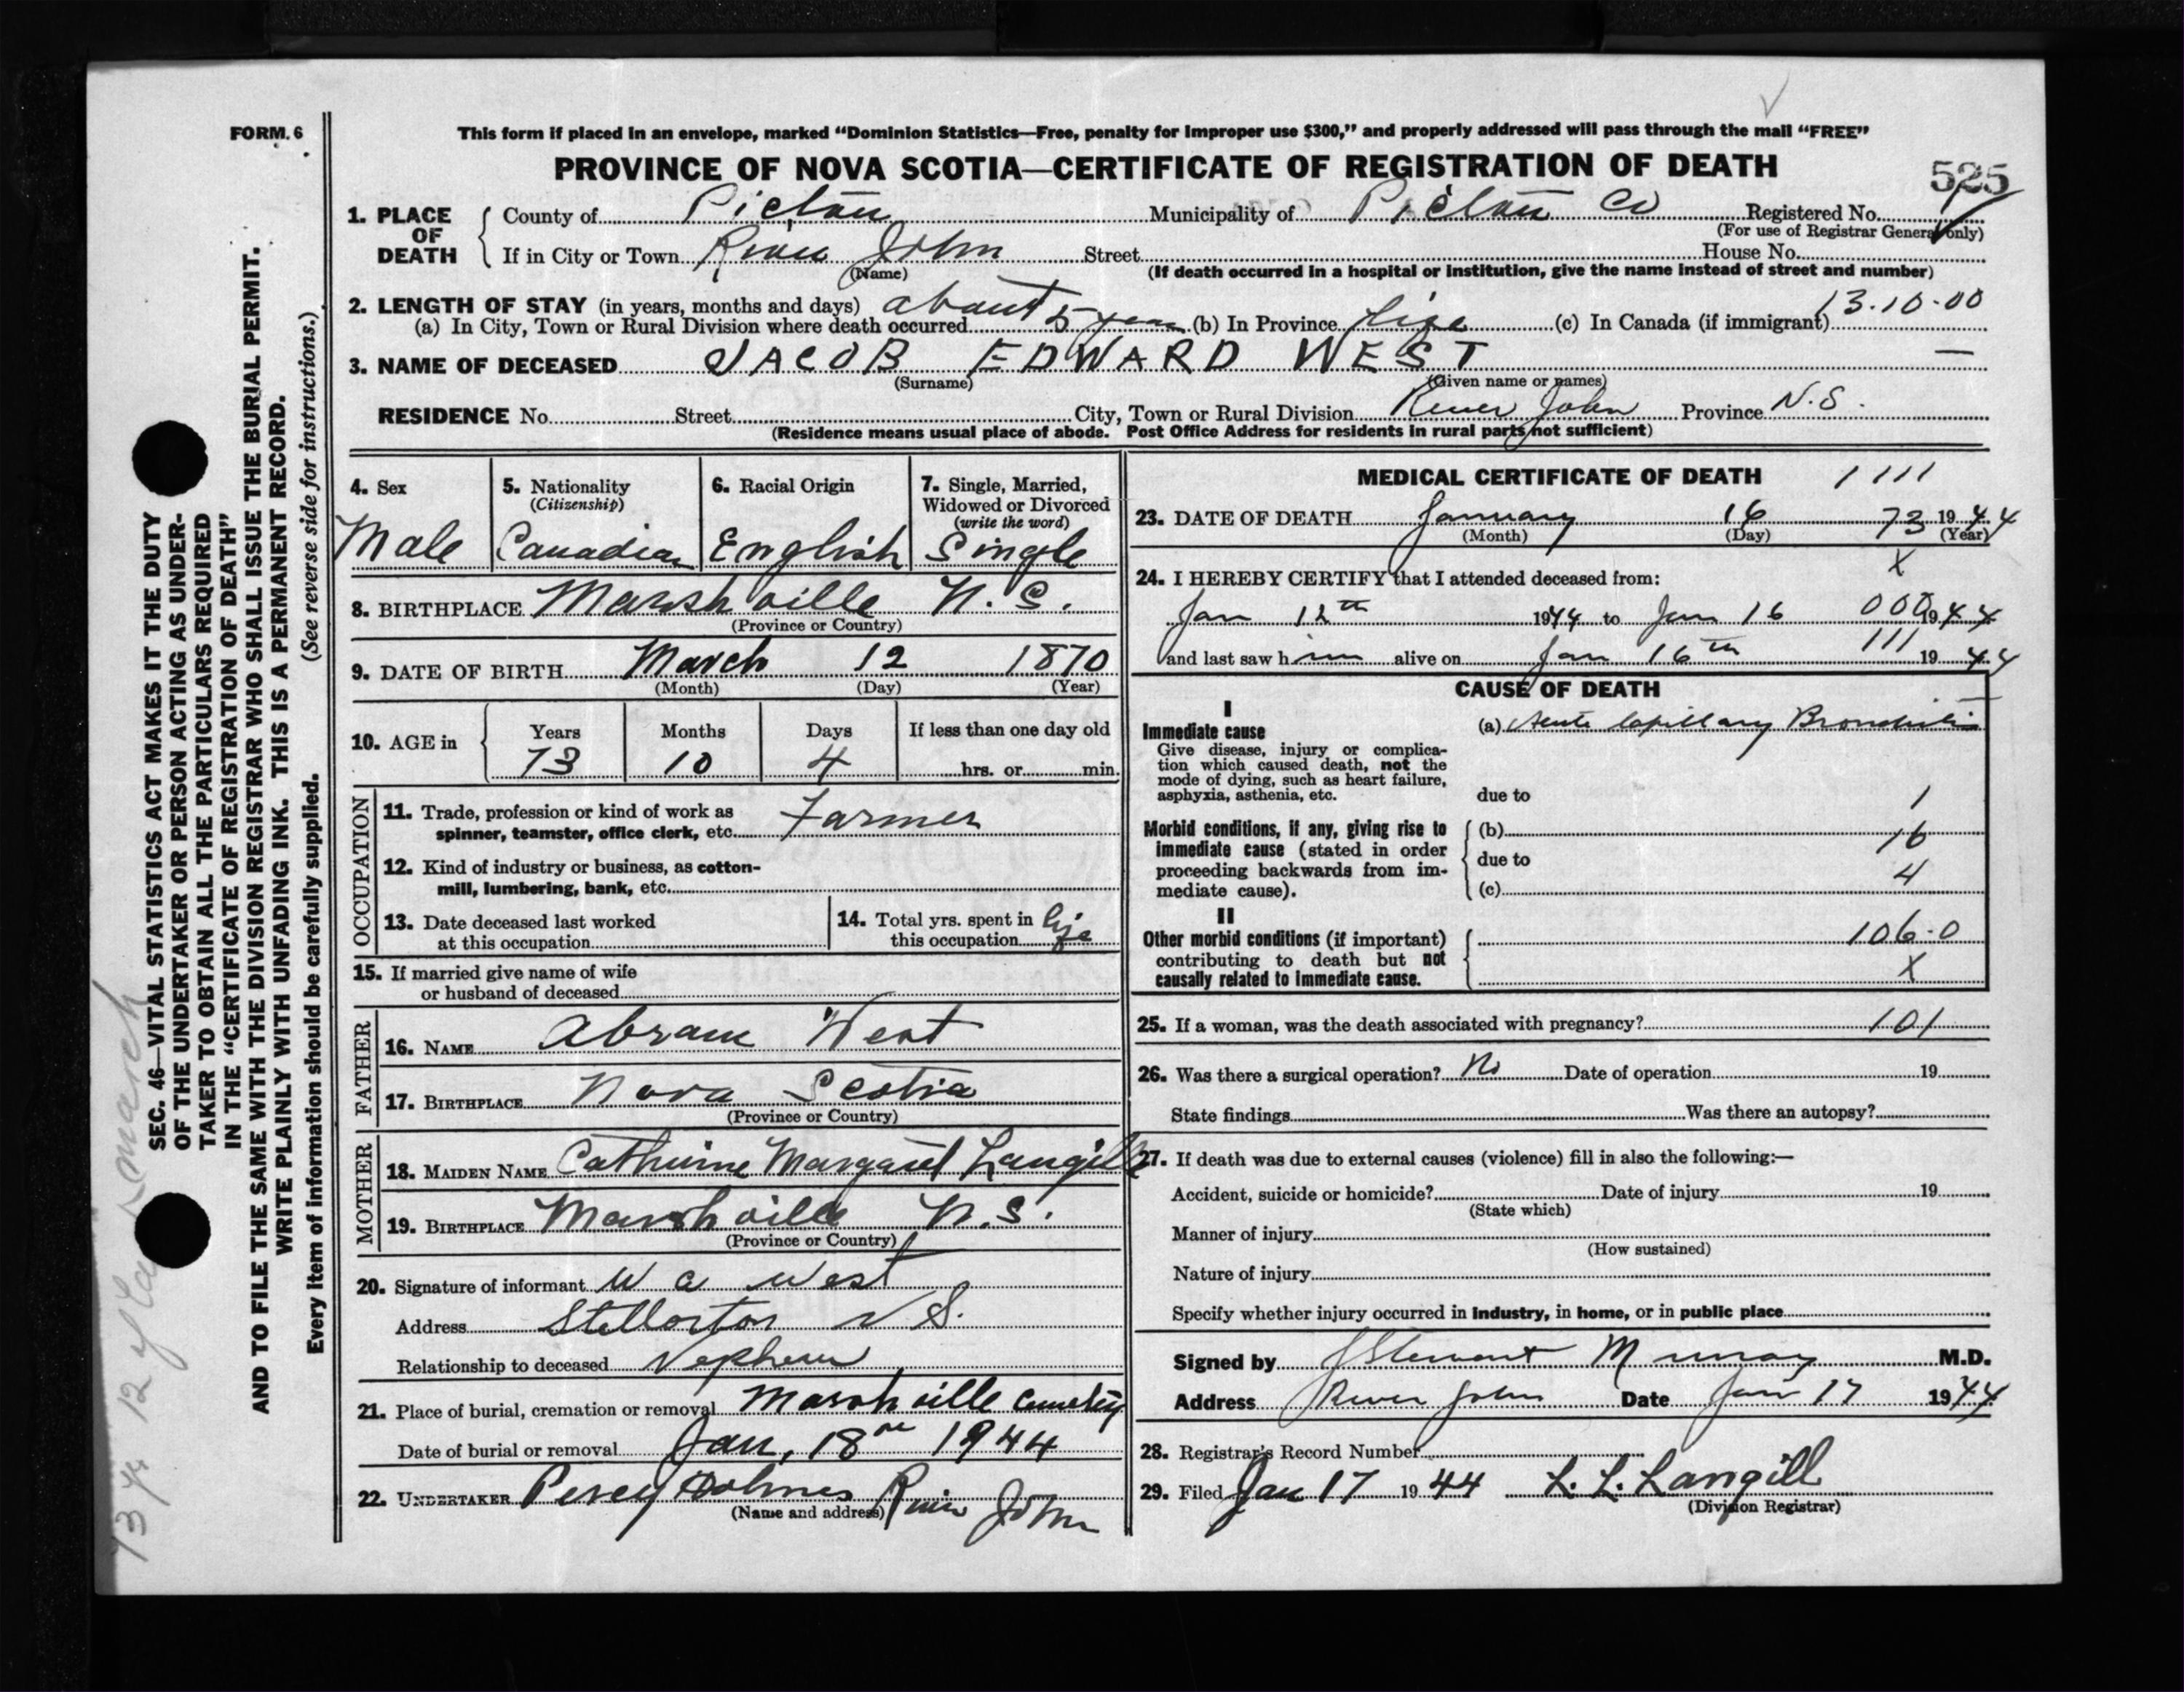 FORM. 6
This form if placed in an envelope, marked “Dominion Statistics—Free, penalty for improper use $300,” and properly addressed will pass through the mail “FREE”
PROVINCE OF NOVA SCOTIA—CERTIFICATE OF REGISTRATION OF DEATH
525
1. PLACE OF DEATH
County of Pictou Municipality of Pictou Co Registered No.
(For use of Registrar General only)
If in City or Town River John Street House No.
(Name) (If death occurred in a hospital or institution, give the name instead of street and number)
2. LENGTH OF STAY (in years, months and days) about 13-10-00
(a) In City, Town or Rural Division where death occurred 5 years (b) In Province life (c) In Canada (if immigrant)
3. NAME OF DECEASED JACOB EDWARD WEST —
(Surname) (Given name or names)
RESIDENCE No. Street City, Town or Rural Division River John Province N.S.
(Residence means usual place of abode. Post Office Address for residents in rural parts not sufficient)
4. Sex
Male
5. Nationality
(Citizenship)
Canadian
6. Racial Origin
English
7. Single, Married,
Widowed or Divorced
(write the word)
Single
8. BIRTHPLACE Marshville N.S.
(Province or Country)
9. DATE OF BIRTH March 12 1870
(Month) (Day) (Year)
10. AGE in
Years Months Days If less than one day old
73 10 4 hrs. or min.
OCCUPATION
11. Trade, profession or kind of work as
spinner, teamster, office clerk, etc. Farmer
12. Kind of industry or business, as cotton-
mill, lumbering, bank, etc.
13. Date deceased last worked
at this occupation
14. Total yrs. spent in
this occupation life
15. If married give name of wife
or husband of deceased
FATHER
16. NAME Abram West
17. BIRTHPLACE Nova Scotia
(Province or Country)
MOTHER
18. MAIDEN NAME Catherine Margaret Langille
19. BIRTHPLACE Marshville N.S.
(Province or Country)
20. Signature of informant W C West
Address Stellarton N S.
Relationship to deceased Nephew
21. Place of burial, cremation or removal Marshville Cemetery
Date of burial or removal Jan, 18th 1944
22. UNDERTAKER Percy Holmes River John
(Name and address)
MEDICAL CERTIFICATE OF DEATH 1 111
23. DATE OF DEATH January 16 73 1944
(Month) (Day) (Year)
X
24. I HEREBY CERTIFY that I attended deceased from:
Jan 12th 1944 to Jan 16 000 1944
and last saw him alive on Jan 16th 111 1944
CAUSE OF DEATH
I
Immediate cause
Give disease, injury or complica-
tion which caused death, not the
mode of dying, such as heart failure,
asphyxia, asthenia, etc.
(a) Acute Capillary Bronchitis
due to 1
Morbid conditions, if any, giving rise to
immediate cause (stated in order
proceeding backwards from im-
mediate cause).
(b) 16
due to
(c) 4
II
Other morbid conditions (if important)
contributing to death but not
causally related to immediate cause.
106-0
X
25. If a woman, was the death associated with pregnancy? 101
26. Was there a surgical operation? No Date of operation 19
State findings Was there an autopsy?
27. If death was due to external causes (violence) fill in also the following:—
Accident, suicide or homicide? Date of injury 19
(State which)
Manner of injury
(How sustained)
Nature of injury
Specify whether injury occurred in industry, in home, or in public place
Signed by J Stewart Murray M.D.
Address River John Date Jan 17 1944
28. Registrar's Record Number
29. Filed Jan 17 1944 L. L. Langill
(Division Registrar)
SEC. 46—VITAL STATISTICS ACT MAKES IT THE DUTY
OF THE UNDERTAKER OR PERSON ACTING AS UNDER-
TAKER TO OBTAIN ALL THE PARTICULARS REQUIRED
IN THE “CERTIFICATE OF REGISTRATION OF DEATH”
AND TO FILE THE SAME WITH THE DIVISION REGISTRAR WHO SHALL ISSUE THE BURIAL PERMIT.
WRITE PLAINLY WITH UNFADING INK. THIS IS A PERMANENT RECORD.
(See reverse side for instructions.)
Every item of information should be carefully supplied.
73 12 March